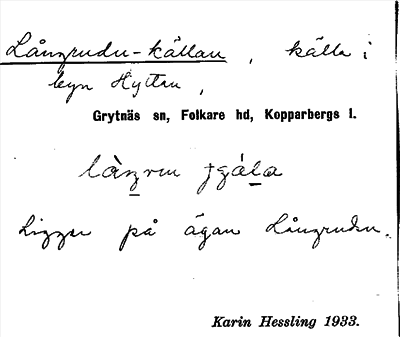 Långrudu-källan, källa i
byn Hyttan,
Grytnäs sn, Folkare hd, Kopparbergs l.
Ligger på ägan Långrudu.
Karin Hessling 1933.